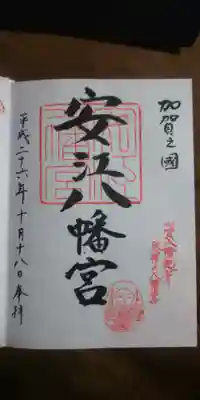 加賀之國
安江八幡宮
平成二十六年十月十八日奉拝